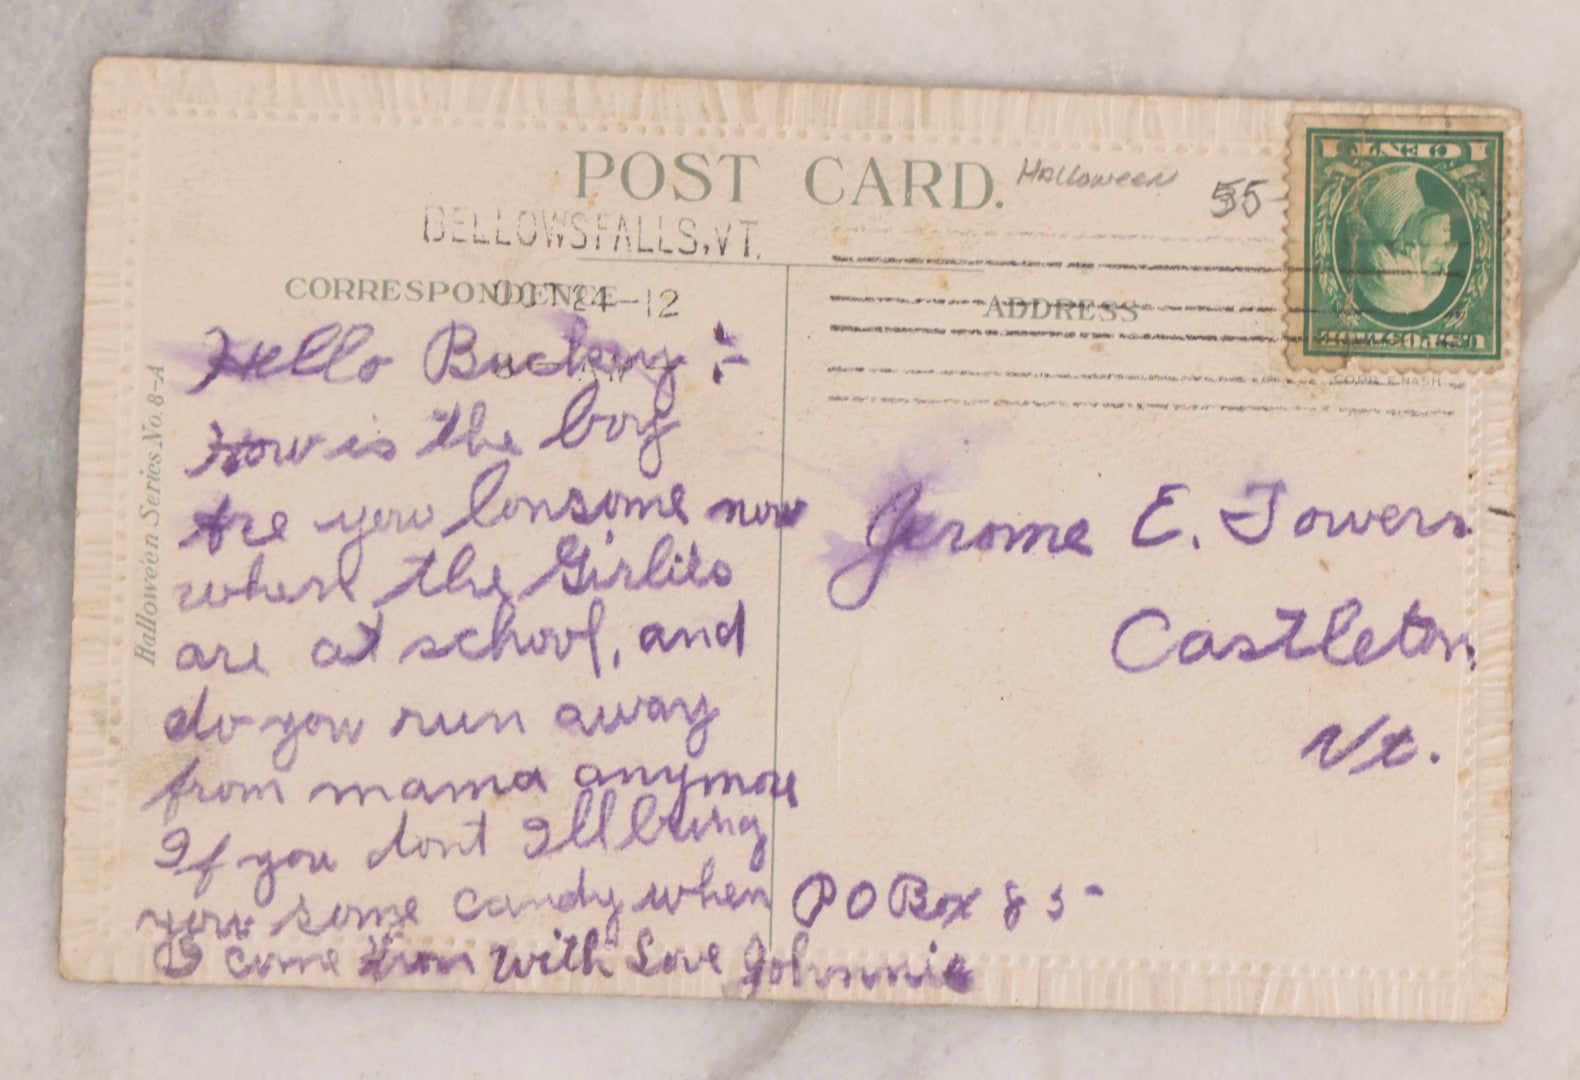 POST CARD.
Halloween
55-
BELLOWS FALLS, VT.
OCT 24-12
CORRESPONDENCE
ADDRESS
Halloween Series No. 8-A
COPR. E. NASH
Hello Buckey :-
How is the boy
Are you lonsome now
when the Girlies
are at school, and
do you run away
from mama anymore
If you dont Ill bring
you some candy when
I come with Love Johnnie
Jerome E. Towers
Castleton,
Vt.
PO Box 85-